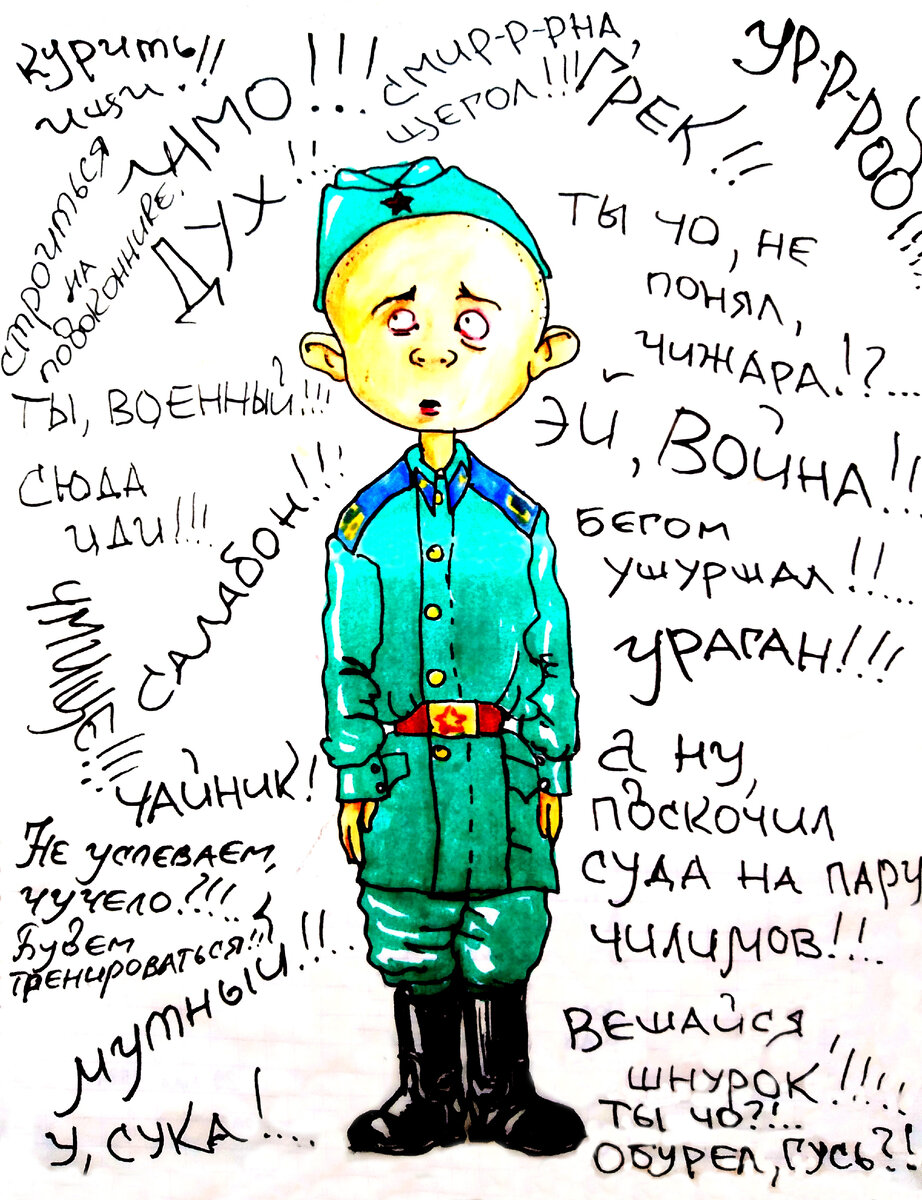 Курить
ищи!!
ЧМО!!!
СМИР-Р-РНА,
ЩЕГОЛ!!!
ГРЕК!!
УР-Р-РОД!!!...
СТРОИТЬСЯ
НА
ПОДОКОННИКЕ!
ДУХ!!...
ТЫ, ВОЕННЫЙ!!!
СЮДА
ИДИ!!!
САЛАБОН!!!
ЧАЙНИК!
НЕ УСПЕВАЕМ,
ЧУЧЕЛО?!!...
БУДЕМ
ТРЕНИРОВАТЬСЯ!!!
МУТНЫЙ!!!...
У, СУКА!....
ТЫ ЧО, НЕ
ПОНЯЛ,
ЧИЖАРА!?...
ЭЙ, ВОЙНА!!
БЕГОМ
УШУРШАЛ!!...
УРАГАН!!!
А НУ,
ПОСКОЧИЛ
СУДА НА ПАРУ
ЧИЛИМОВ!!...
ВЕШАЙСЯ,
ШНУРОК!!!...
ТЫ ЧО?!...
ОБУРЕЛ, ГУСЬ?!